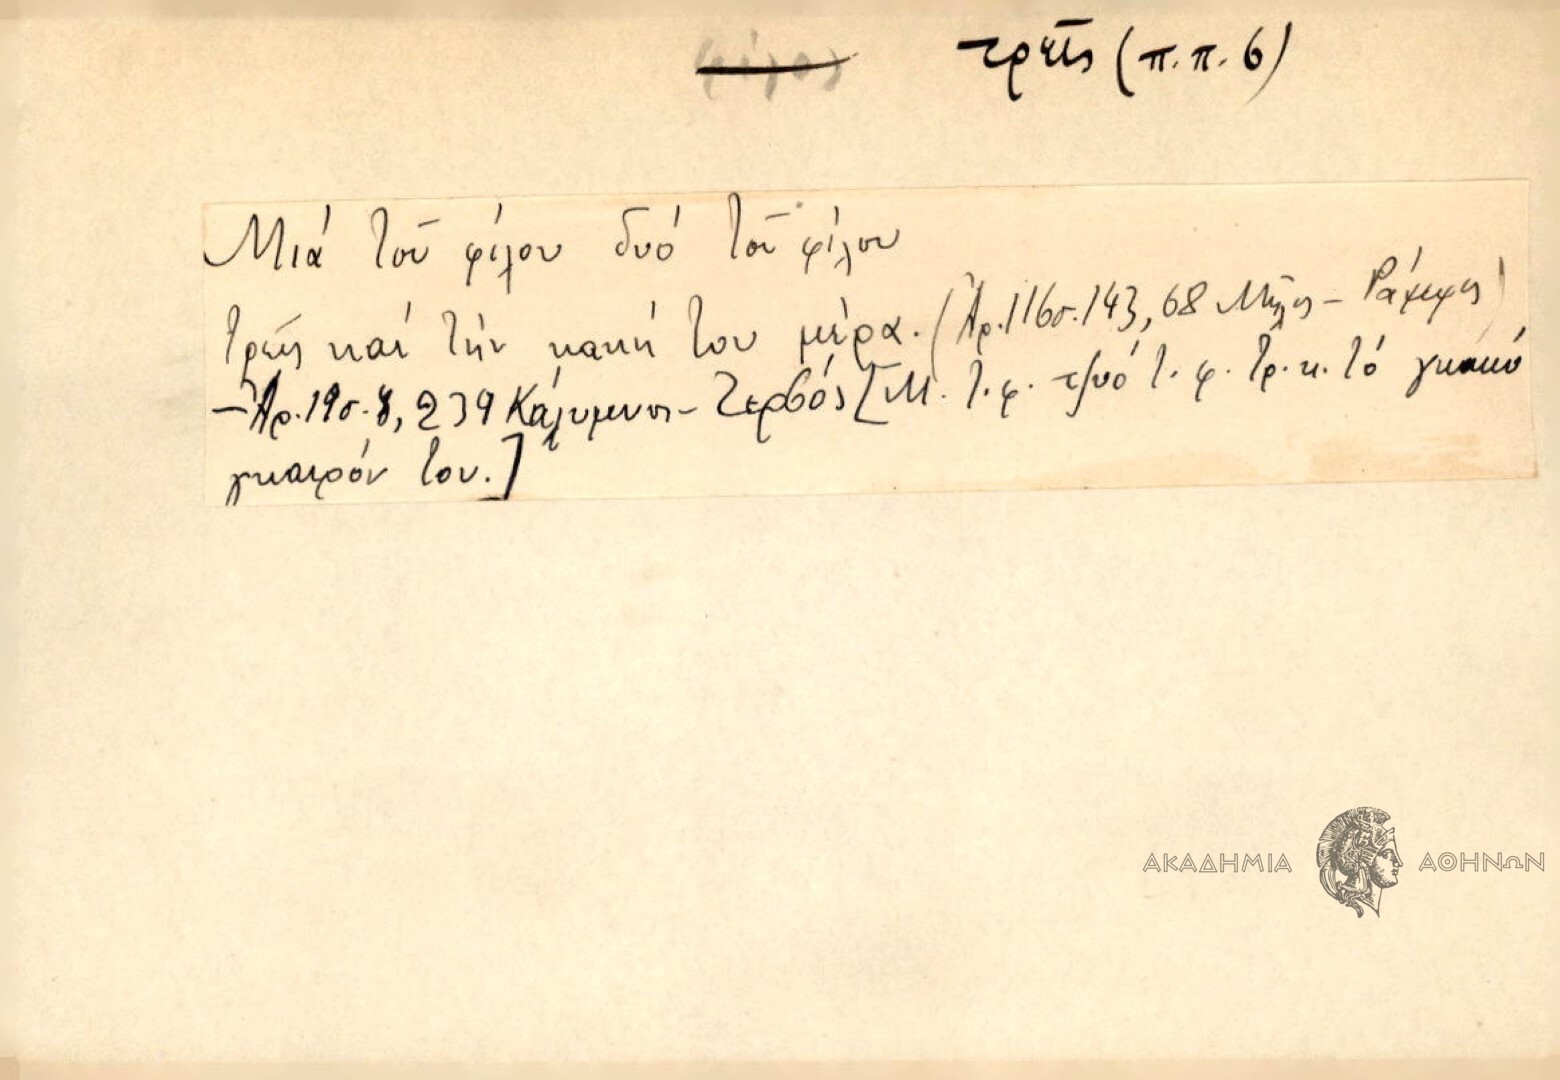 τρεῖς (π.π. 6)
Μιά τοῦ φίλου δυό τοῦ φίλου
τρεῖς καί τήν κακή του μέρα. (Ἀρ. 116 σ. 143, 68 Μῆλος –
– Ἀρ. 19 σ. 8, 239 Κάλυμνος – Ζερβός [Μ. τ. φ. τζυό τ. φ. τρ. κ. τό γκακό
γκαιρόν του.]
ΑΚΑΔΗΜΙΑ ΑΘΗΝΩΝ